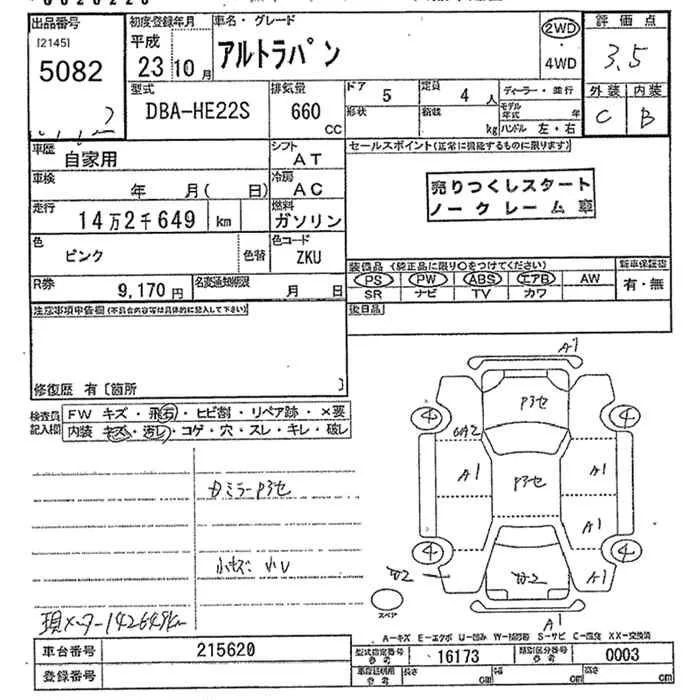 出品番号
[2145]
5082
初度登録年月
平成
23 10月
車名・グレード
アルトラパン
2WD
・
4WD
評価点
3.5
外装 内装
C B
型式
DBA-HE22S
排気量
660
CC
ドア
5
定員
4人
形状
積載
kg
ディーラー・並行
モデル
年式 年
ハンドル 左・右
車歴
自家用
シフト
AT
車検
年 月( 日)
冷房
AC
走行
14万2千649 km
燃料
ガソリン
色
ピンク
色替
色コード
ZKU
R券
9,170円
名変通知期限
月 日
セールスポイント(正常に機能するものに限ります)
売りつくしスタート
ノークレーム車
装備品(純正品に限り○をつけてください)
PS PW ABS エアB AW
SR ナビ TV カワ
新車保証書
有・無
後日品
注意事項申告欄(不具合内容等は具体的に記入して下さい)
修復歴 有[箇所 ]
検査員
記入欄
FW キズ・飛石・ヒビ割・リペア跡・×要
内装 キズ・汚レ・コゲ・穴・スレ・キレ・破レ
ミラーP3セ
現メーター142649km
A1
P3セ
4
4
A1
P3セ
A1
A1
4
4
A1
A1
スペア
A-キズ E-エクボ U-凹み W-補修跡 S-サビ C-腐食 XX-交換済
車台番号
215620
登録番号
型式指定番号
参考
16173
類別区分番号
参考
0003
車庫証明用
参考
長さ cm
幅 cm
高さ cm